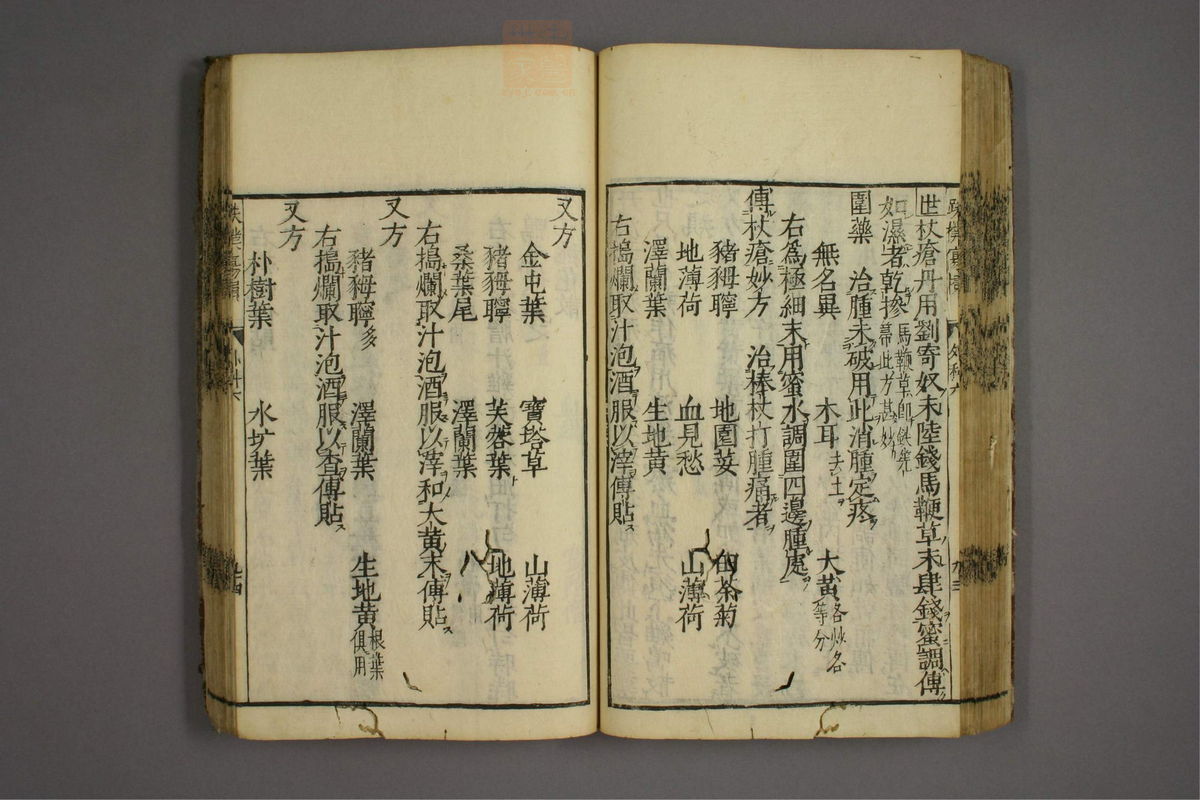 世杖瘡丹用劉寄奴末陸錢馬鞭草末肆錢蜜調傅
如濕者乾摻
圍藥 治腫未破用此消腫定疼
無名異 木耳去土 大黃各炒各等分
右爲極細末用蜜水調圍四邊腫處
傅杖瘡妙方 治棒杖打腫痛者
豬毑聹 地園荽 白茶菊
地薄荷 血見愁 山薄荷
澤蘭葉 生地黃
右搗爛取汁泡酒服以滓傅貼
又方
金屯葉 寶塔草 山薄荷
豬毑聹 芙蓉葉 地薄荷
桑葉尾 澤蘭葉
右搗爛取汁泡酒服以滓和大黃末傅貼
又方
豬毑聹多 澤蘭葉 生地黃根葉俱用
右搗爛取汁泡酒服以查傅貼
又方
朴樹葉 水圹葉